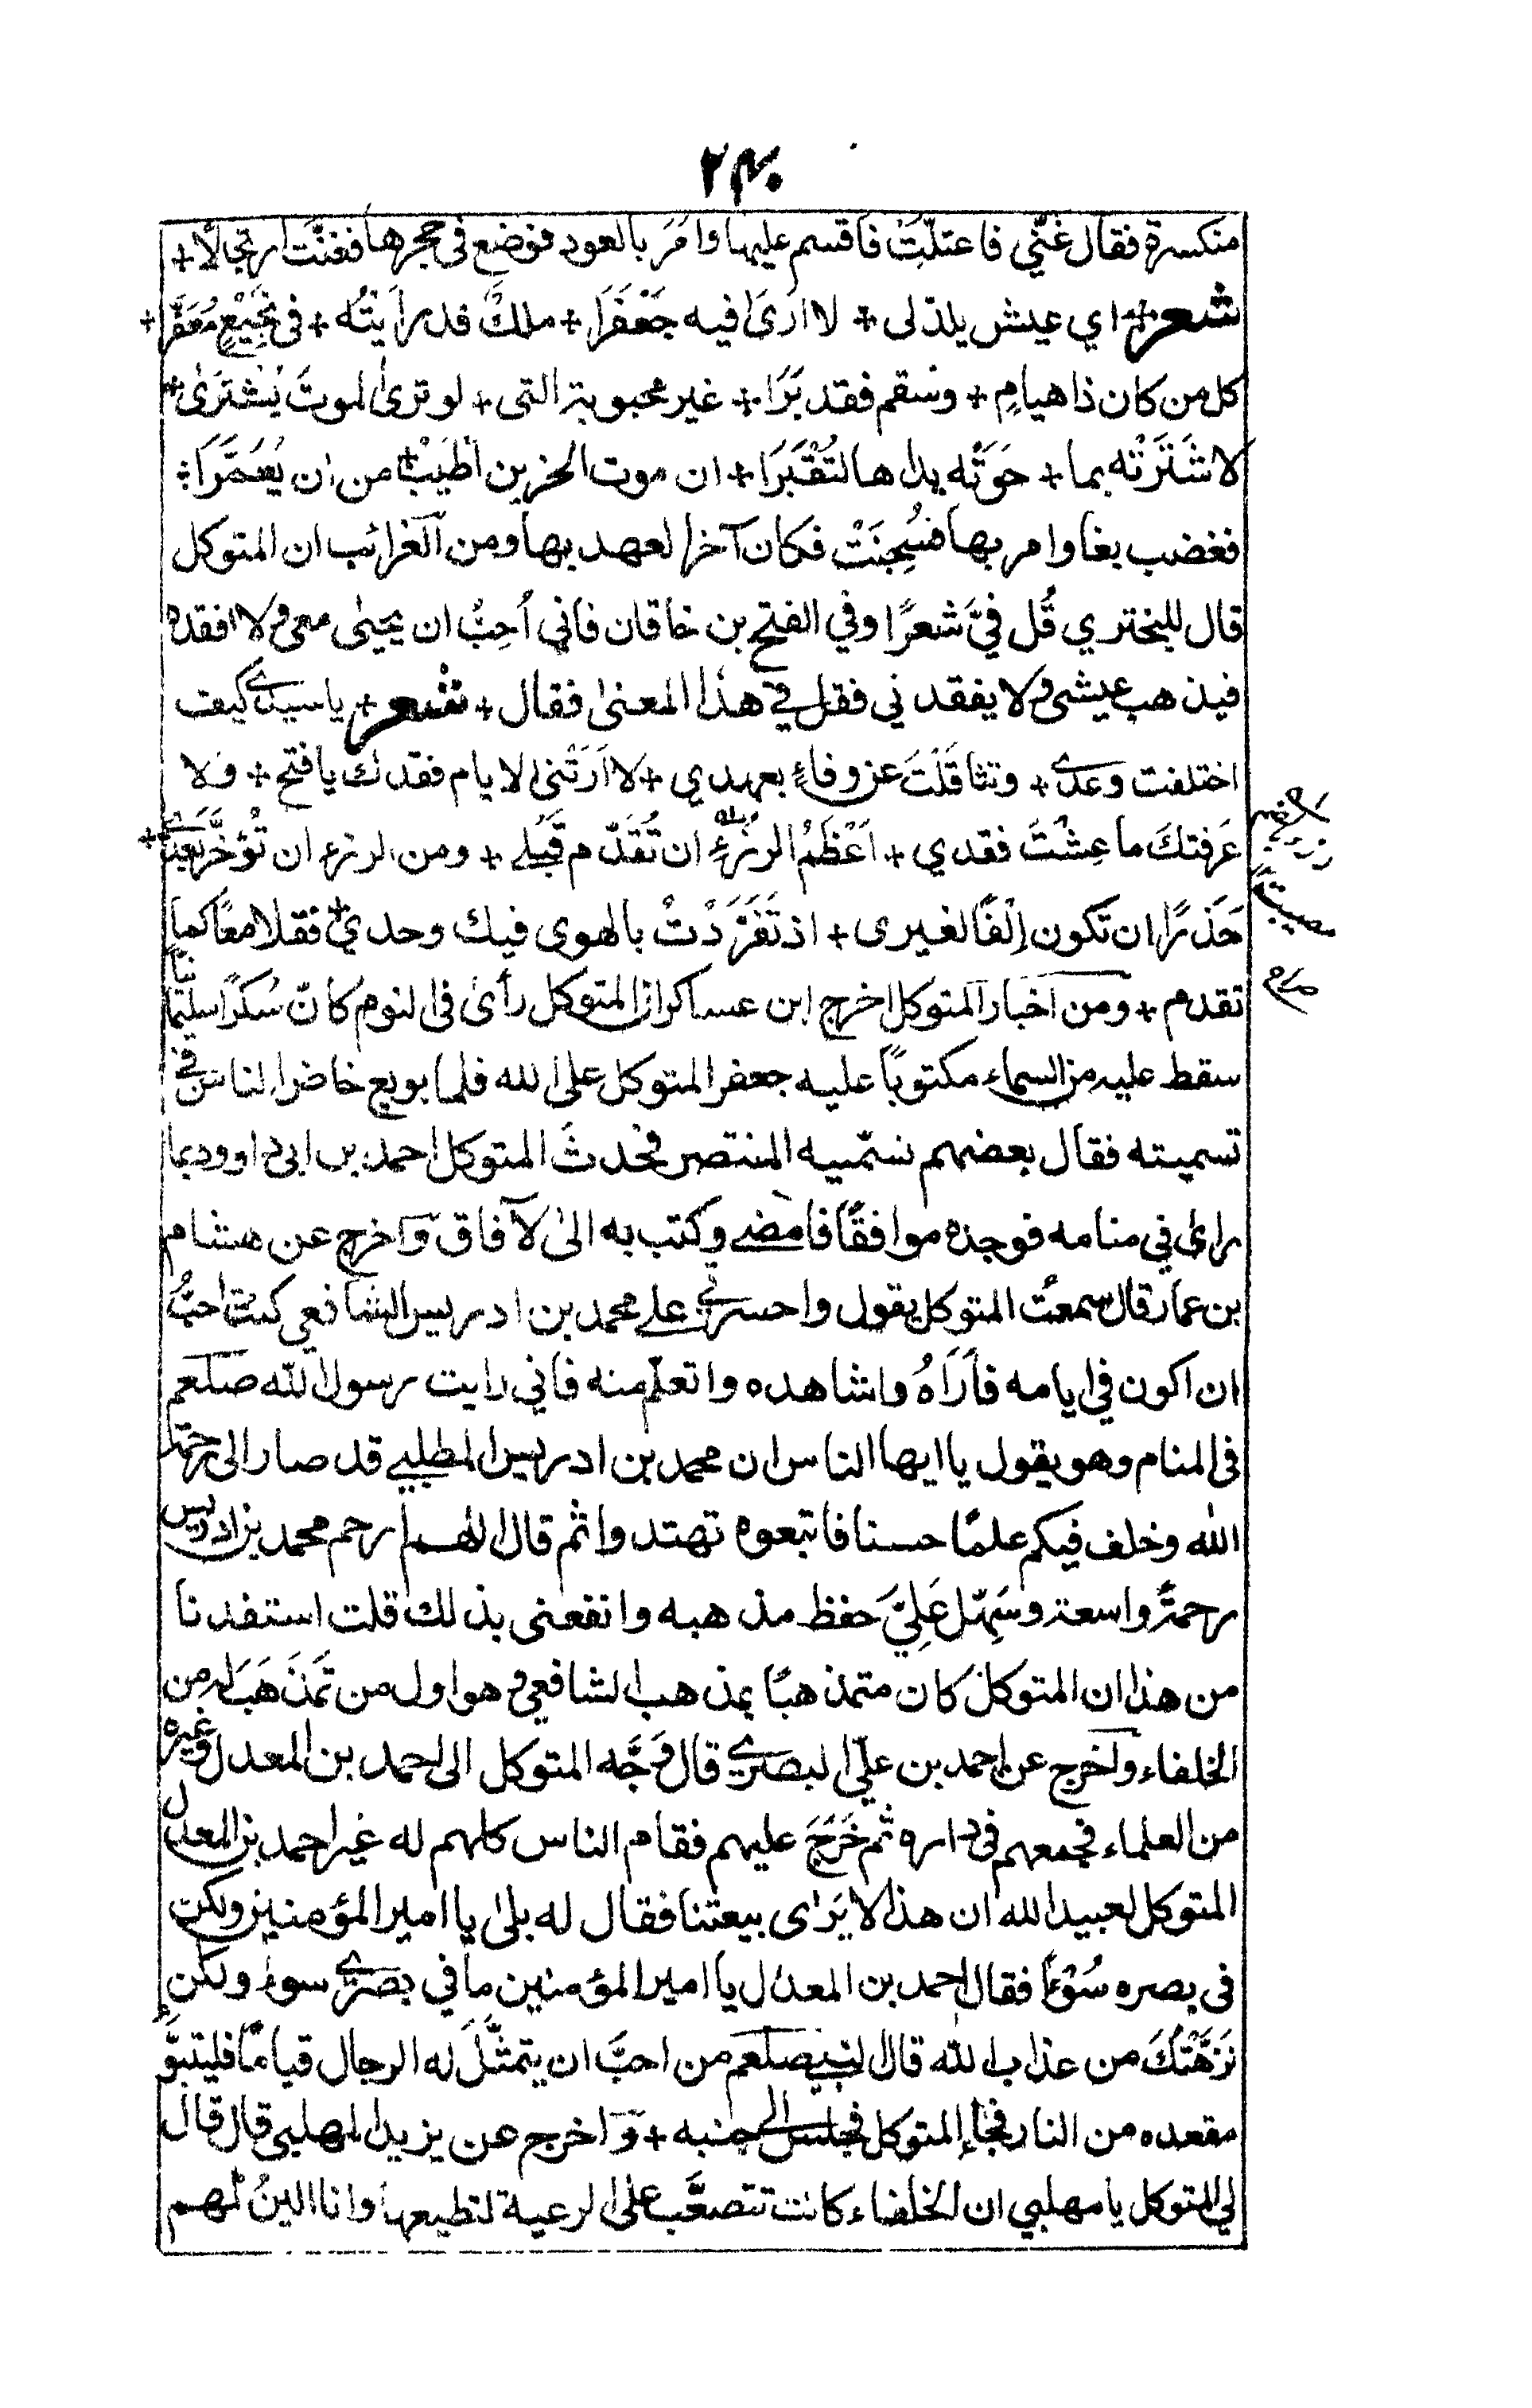 ٢٤٠
منكسرة فقال غنّي فاعتلّت فاقسم عليها وامَرَ بالعود فوضع فى حجرها فغنَّت ارتجالًا +
شعر + اي عيش يلذلى + لا ارَىٰ فيه جَعْفَرَا + ملكٌ قد رأيتُه + فى نَجِيْعٍ مُعَفَّرا +
كل من كان ذا هيامٍ + وسقم فقد بَرَا + غير محبوبة التى + لو ترىٰ الموتَ يُشْتَرىٰ +
لاشَتَرَتْه بما + حَوَتْه يداها لتُقْبَرَا + ان موت الحزين اَطْيَبُ + من ان يُعَمَّرَا +
فغضب بغا وامر بها فسُجِنَتْ فكان آخر العهد بها ومن الغرائب ان المتوكل
قال للبختري قُل فيَّ شعرًا وفي الفتح بن خاقان فاني اُحِبُّ ان يحيىٰ معى ولا افقده
فيذهب عيشى ولا يفقدني فقل في هذا المعنىٰ فقال + شعر + ياسيدي كيف
اختلفت وعدي + وتثاقَلْتَ عن وفاءٍ بعهدي + لا اَرَتْنى الايام فقدك يافتح + ولا
عَرفتكَ ما عِشْتَ فقدي + اَعْظَمُ الرزْءِ ان تُقَدَّم قَبْلي + ومن الرزء ان تُؤخَّر بَعْدي +
حَذرًا ان تكون اِلْفًا لغيرى + اذ تَفَرَّدْتُ بالهوى فيك وحدي + فقلا معًا كما
تقدم + ومن اخبار المتوكل اخرج ابن عساكر ان المتوكل رأىٰ فى النوم كانّ سُكرًا سليمانيًا
سقط عليه من السماء مكتوبًا عليه جعفر المتوكل على الله فلما بويع خاض الناس في
تسميته فقال بعضهم نسمّيه المنتصر فحدث المتوكل احمد بن ابي داوود بما
راىٰ في منامه فوجده موافقًا فامضي وكتب به الىٰ الآفاق واخرج عن هشام
بن عمار قال سمعتُ المتوكل يقول واحسرتي علي محمد بن ادريس الشافعي كنت احبُّ
ان اكون في ايامه فأرَاهُ واشاهده واتعلّم منه فاني رايت رسول الله صلعم
فى المنام وهو يقول يا ايها الناس ان محمد بن ادريس المطلبي قد صار الى رحمة
الله وخلف فيكم علمًا حسنا فاتبعوه تهتدوا ثم قال اللهم ارحم محمد بن ادريس
رحمةً واسعة وسَهِّل عَلَيَّ حفظ مذهبه وانفعنى بذلك قلت استفدنا
من هذا ان المتوكل كان متمذهبًا بمذهب الشافعي وهو اول من تَمَذْهَبَ له من
الخلفاء واخرج عن احمد بن عليّ البصري قال وَجَّه المتوكل الى احمد بن المعدل وغيره
من العلماء فجمعهم في داره ثم خَرَجَ عليهم فقام الناس كلهم له غير احمد بن المعدل
المتوكل لعبيد الله ان هذا لا يَرَاى بيعتنا فقال له بلىٰ يا امير المؤمنين ولكن
فى بصره سُوْءً فقال احمد بن المعدل يا امير المؤمنين ما في بصري سوء ولكن
نَزَّهْتُكَ من عذاب الله قال النبي صلعم من احبَّ ان يتمثَّلَ له الرجال قيامًا فليتبوَّ
مقعده من النار فجاء المتوكل فجلس الى جنبه + واخرج عن يزيد المهلبى قال قال
لي المتوكل يا مهلبي ان الخلفاء كانت تتصعَّب على الرعية لتطيعها وانا الينُ لهم